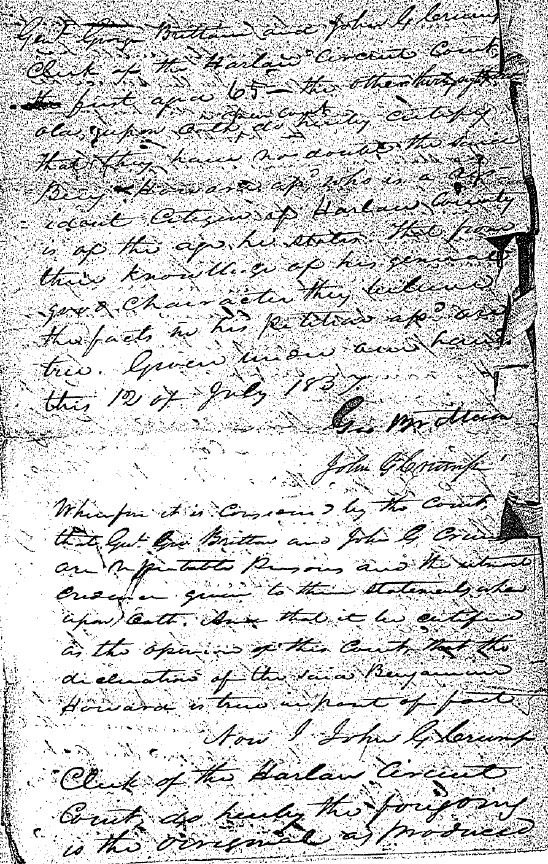 Genl. George Brittain and John G Crump
Clerk of the Harlan Circuit Court
the first aged 65 – the other
old, upon oath, do hereby certify
open Court
that they have no doubt the said
Benj Howard afsd who is a res
ident Citizen of Harlan County
is of the age he states. That from
their knowledge of his general
good Character they believe
the facts in his petition afsd are
true. Given under our hands
this 12 of July 1837
Geo Brittain
John G Crump
Wherefore it is considered by the Court
that Genl. Geo Brittain and John G Crump
are reputable Persons and the utmost
credence given to their statements when
upon Oath. And that it be certified
as the opinion of this Court, that the
declaration of the said Benjamin
Howard is true in point of fact
Now I John G Crump
Clerk of the Harlan Circuit
Court, do hereby the forgoing
is the original as produced